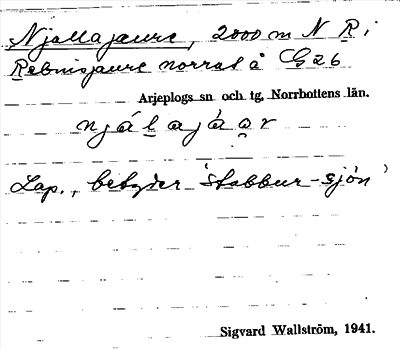 Njallajaure, 2000 m N R i
Rebnisjaure norra l å G 26
Arjeplogs sn och tg, Norrbottens län.
njálajáar
Lap., betyder 'stabbur-sjön'
Sigvard Wallström, 1941.